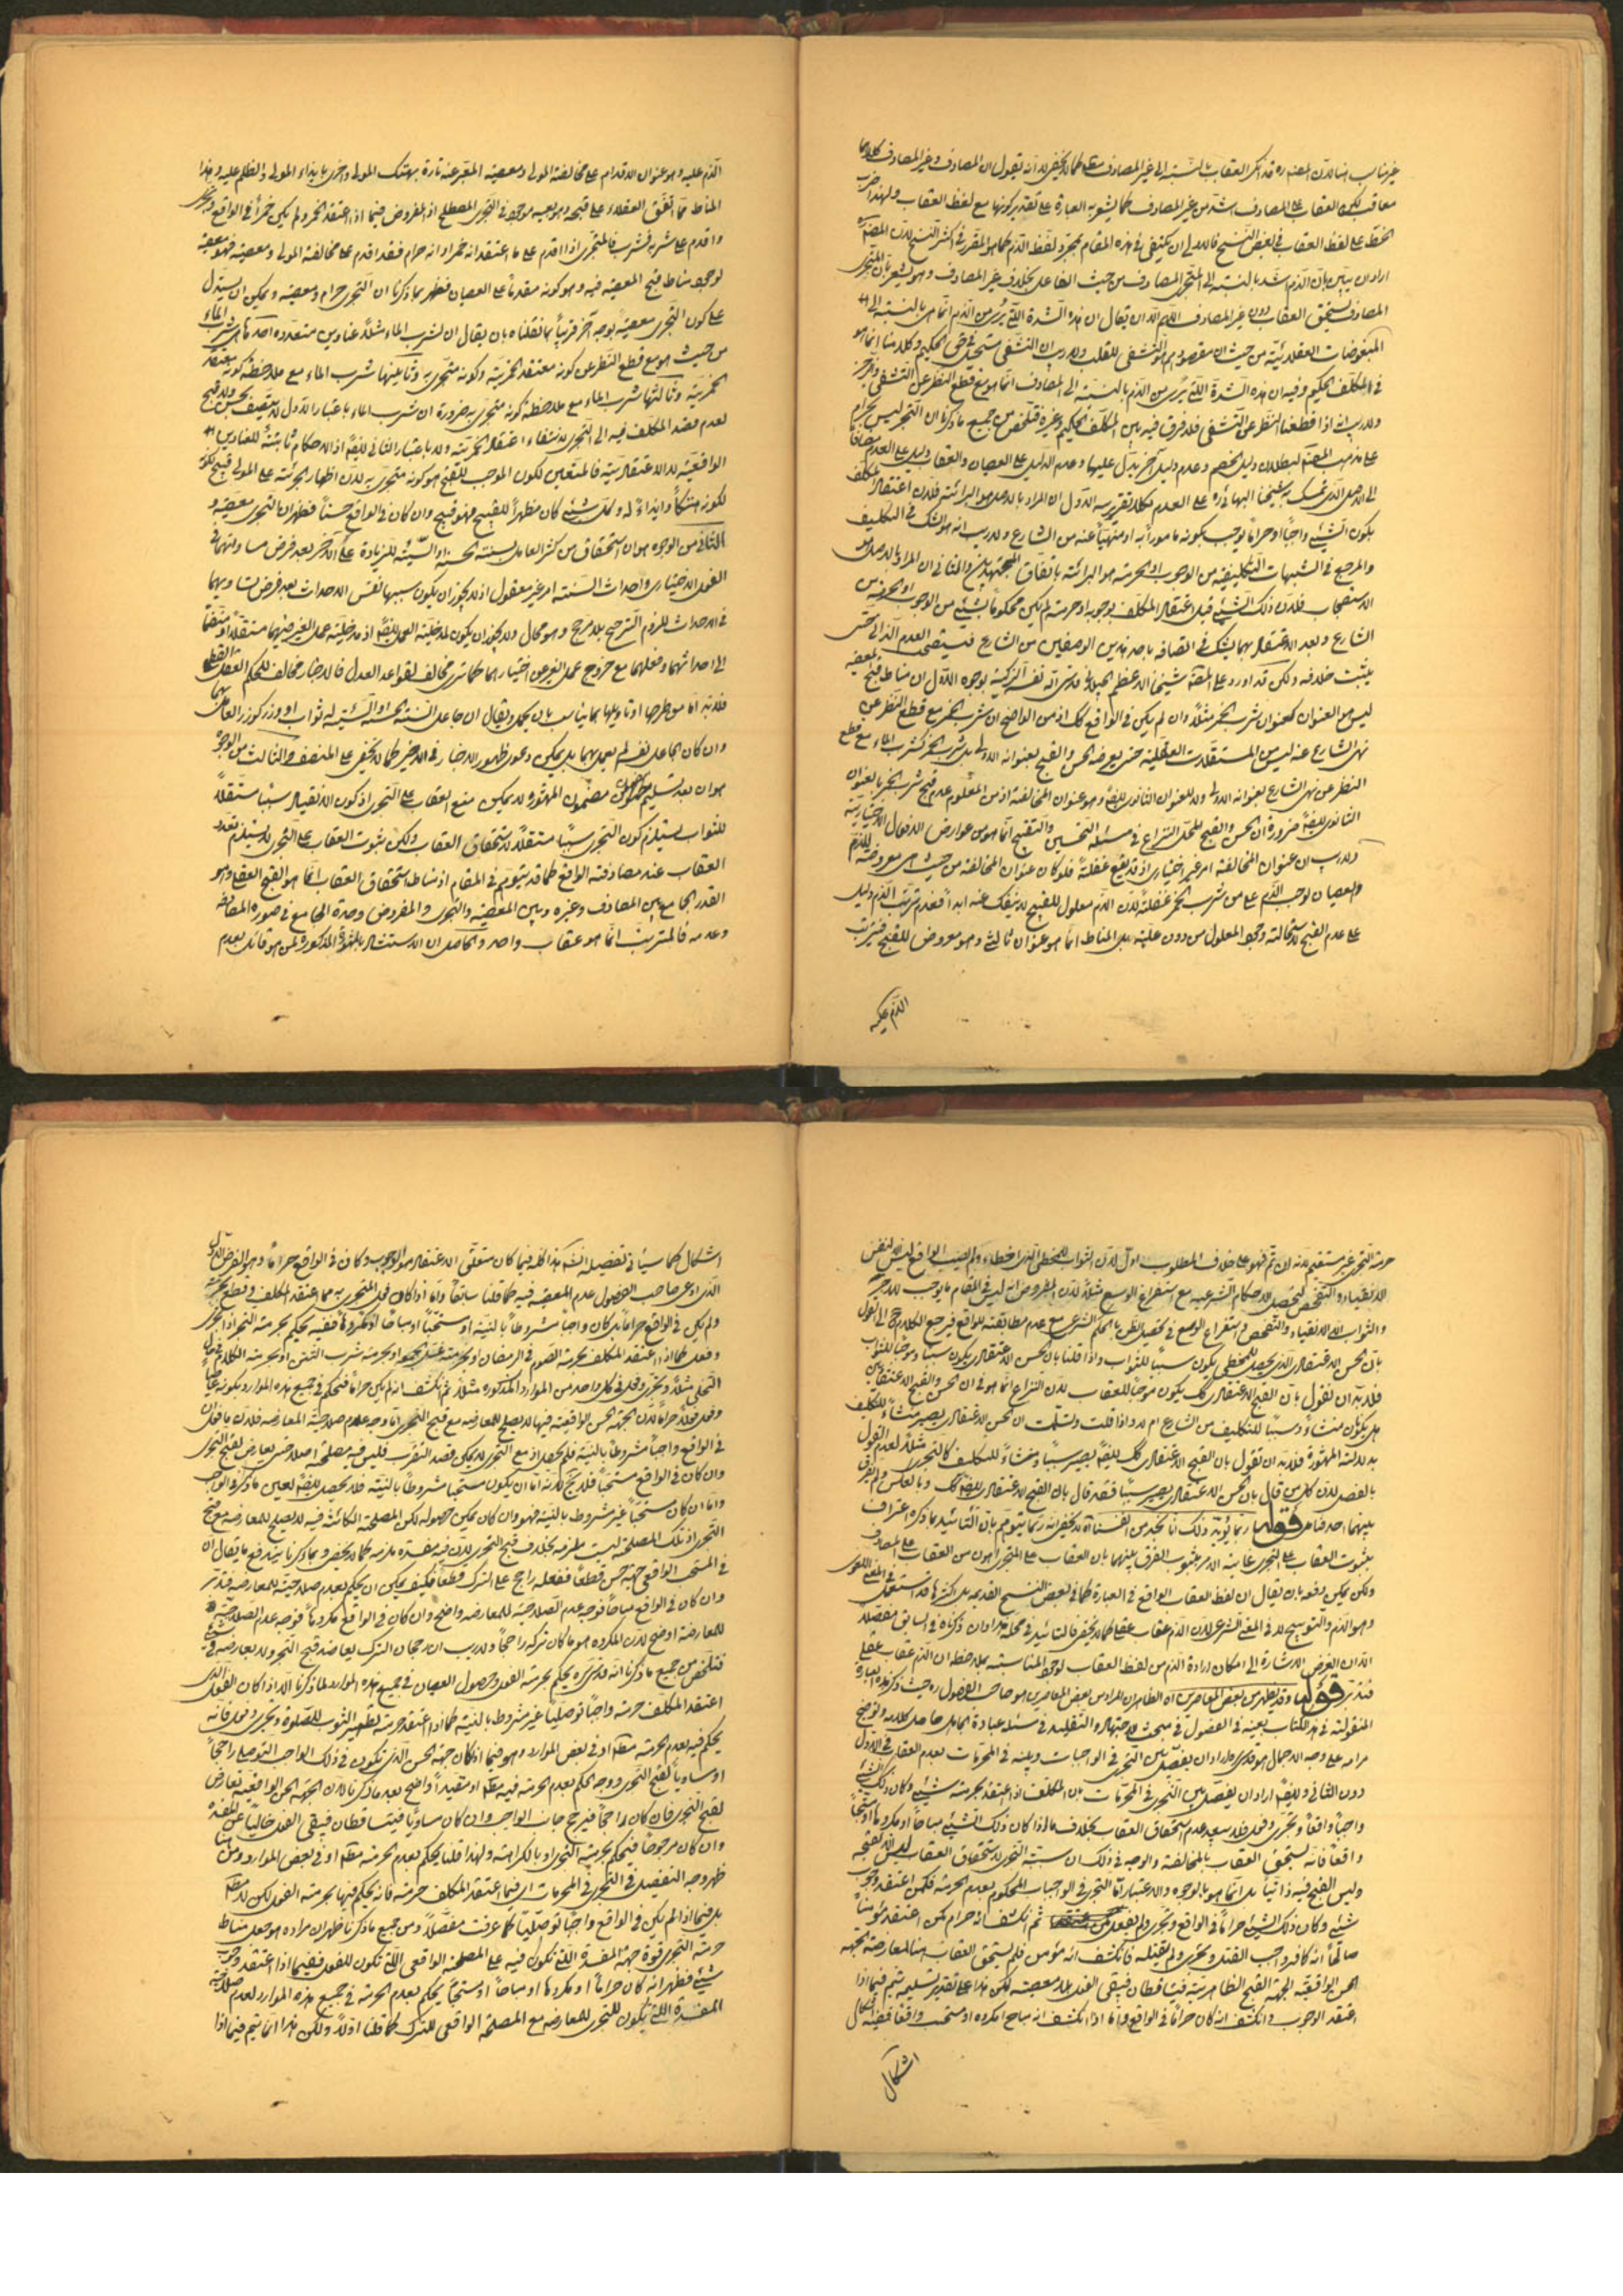 غير مناسب هنا لان المصنف ره قد انكر العقاب بالنسبة الى غير المصادف كما لا يخفى الا انه يقول ان المصادف وغير المصادف كلاهما
معاقب لكن العقاب على المصادف اشد من غير المصادف كما يشعر به العبارة على تقدير كونها مع لفظ العقاب ولهذا ضرب
الخط على لفظ العقاب في بعض النسخ فالاولى ان يكتفى في هذه المقام بمجرد لفظ الذم كما هو المقرر في اكثر النسخ لان المصنف
اراد ان يبين بان الذم شد بالنسبة الى المتجرى المصادف من حيث الفاعل بخلاف غير المصادف وهو يشعر بان المتجرى
المصادف يستحق العقاب دون غير المصادف اللهم الا ان يقال ان هذه الشدة التي نرى من الذم انما هى بالنسبة الى
المبغوضات العقلائية من حيث ان مقصودهم هو التشفى للقلب ولا ريب ان التشفى مستحيل في حق الحكيم وكلامنا انما هو
في المكلف الحكيم وفيه ان هذه الشدة التي نرى من الذم بالنسبة الى المصادف انما هو مع قطع النظر عن التشفى
ولا ريب انه اذا قطعنا النظر عن التشفى فلا فرق فيه بين المكلف الحكيم وغيره فتلخص من جميع ما ذكرنا ان التجرى ليس بحرام
على مذهب المصنف لبطلان دليل الخصم وعدم دليل آخر يدل عليها وعدم الدليل على العصيان والعقاب دليل على العدم مضافا
الى الاصل الذى تمسك به شيخنا البهائى ره على العدم فكلا تقريريه الاول ان المراد بالاصل هو البرائة فلان اعتقاد المكلف
بكون الشئ واجبا او حراما يوجب بكونه مامورا به او منهيا عنه من الشارع ولا ريب انه هو الشك في التكليف
والمرجع في الشبهات التكليفية من الوجوب او الحرمة هو البرائة باتفاق المجتهدين والثانى ان المراد بالاصل هو
الاستصحاب فلان ذلك الشئ قبل اعتقاد المكلف بوجوبه او حرمته لم يكن محكوما بشئ من الوجوب او الحرمة من
الشارع وبعد الاعتقاد بهما يشك في اتصافه باحد هذين الوصفين من الشارع فيستصحب العدم الازلى حتى
يثبت خلافه ولكن قد اورد على المصنف شيخنا الاعظم الجيلانى قدس الله نفسه الزكية بوجوه الاول ان مناط قبح المعصية
ليس هو العنوان كعنوان شرب الخمر مثلا وان لم يكن في الواقع كك اذ من الواضح ان شرب الخمر مع قطع النظر عن
نهى الشارع عنه ليس من المستقلات العقلية حتى يعرضه الحسن والقبح بعنوانه الاولى بل شرب الخمر كشرب الماء مع قطع
النظر عن نهى الشارع بعنوانه الاولى ولا للعنوان الثانوى ايضا وهو عنوان المخالفة اذ من المعلوم عدم قبح شرب الخمر بالعنوان
الثانوى ايضا ضرورة ان الحسن والقبح للمحل النزاع في مسئلة التحسين والتقبيح انما هو من عوارض الافعال الاختيارية
ولا ريب ان عنوان المخالفة امر غير اختيارى اذ قد يقع غفلة فلو كان عنوان المخالفة من حيث هى معروضة للذم
والعصيان لوجب الذم على من شرب الخمر غفلة لان الذم معلول للقبح لا ينفك عنه ابدا فعدم ترتب الذم دليل
على عدم القبح لاستحالة وجود المعلول من دون علة بل المناط انما هو عنوان ثالث وهو معروض للقبح فيترتب
الذم عليه
الذم عليه وهو عنوان الاقدام على مخالفة المولى ومعصيته المعبر عنه تارة بهتك المولى واخرى بايذاء المولى والظلم عليه وهذا
المناط مما اتفق العقلاء على قبحه وهو بعينه موجود في التجرى المصطلح اذ المفروض فيما اذا اعتقد الخمر ولم يكن خمرا في الواقع وتجرى
واقدم على شربه فشرب فالمتجرى اذا اقدم على ما اعتقد انه خمر او انه حرام فقد اقدم على مخالفة المولى ومعصيته فهو معصية
لوجود مناط قبح المعصية فيه وهو كونه مقدما على العصيان فظهر مما ذكرنا ان التجرى حرام ومعصية ويمكن ان يستدل
على كون التجرى معصية بوجه آخر قريبا مما نقلناه بان يقال ان لشرب الماء مثلا عناوين متعددة احدها شرب الماء
من حيث هو مع قطع النظر عن كونه معتقد الخمرية وكونه متجرى به وثانيها شرب الماء مع ملاحظة كونه معتقد
الخمرية وثالثها شرب الماء مع ملاحظة كونه متجرى به ضرورة ان شرب الماء باعتبار الاول لا يتصف بحسن ولا قبح
لعدم قصد المكلف فيه الى التجرى لانتفاء اعتقاد الخمرية ولا باعتبار الثانى ايضا اذ الاحكام ثابتة للعناوين
الواقعية لا الاعتقادية فالمتعين لكون الموجب للقبح هو كونه متجرى به لان اظهار الجرئة على المولى قبيح
لكونه هتكا وايذاء له وكل شئ كان مظهرا للقبيح فهو قبيح وان كان في الواقع حسنا فظهر ان التجرى معصية و
الثانى من الوجوه هو ان استحقاق من كثر العامل بسنته الحسنة او السيئة للزيادة على الآخر بعد فرض مساواتهما في
الفعل الاختيارى واحداث السنة امر غير معقول اذ لا يجوز ان يكون سببها نفس الاحداث بعد فرض تساويهما
في الاحداث للزوم الترجيح بلا مرجح وهو محال ولا يجوز ان يكون لمدخلية العمل ايضا اذ مدخلية عمل الغير فيهما مستقلا او منضما
الى احداثهما وفعلهما مع خروج عمل الغير عن اختيارهما كما ترى مخالف لقواعد العدل فالاخبار مخالف لحكم العقل القطعى
فلا بد اما من طرحها او تاويلها بما يناسب بان يحمل ويقال ان جاعل السنة الحسنة او السيئة له ثواب او وزر كوزر العامل بهما
وان كان الجاعل نفسه لم يعمل بهما بل يمكن دعوى ظهور الاخبار في الاخير كما لا يخفى على المنصف والثالث من الوجوه
هو ان بعد تسليم مضمون المشهورة لا يمكن منع العقاب على التجرى اذ كون الانقياد سببا مستقلا
للثواب يستلزم كون التجرى سببا مستقلا لاستحقاق العقاب ولكن ثبوت العقاب على التجرى لا يستلزم تعدد
العقاب عند مصادفة الواقع كما قد يتوهم في المقام اذ مناط استحقاق العقاب انما هو القبح العقلى وهو
القدر الجامع بين المصادف وغيره وبين المعصية والتجرى والمفروض وحدة الجامع في صورة المصادفة
وعدمه فالمترتب انما هو عقاب واحد والحاصل ان الاستشهاد بالشهرة المذكورة لمن هو قائل بعدم
حرمة التجرى غير مستقيم لانه ان تم فهو على خلاف المطلوب اول لان الثواب للمخطى الذى اخطاء ولم يصب الواقع ليس الا لنفس
الانقياد والتفحص لتحصيل الاحكام الشرعية مع استفراغ الوسع مثلا لان المفروض انه ليس في المقام ما يوجب للاجر
والثواب الا الانقياد والتفحص واستفراغ الوسع في تحصيل الظن بالحكم الشرعى مع عدم مطابقته للواقع فيرجع الكلام ح الى القول
بان الحسن الاعتقادى الذى يحصل للمخطى يكون سببا للثواب واذا قلنا بان الحسن الاعتقادى يكون سببا وموجبا للثواب
فلا بد ان نقول بان القبح الاعتقادى كك يكون موجبا للعقاب لان النزاع انما هو في ان الحسن والقبح الاعتقاديين
هل يكونان منشاء وسببا للتكليف من الشارع ام لا واذا قلت وسلمت ان الحسن الاعتقادى يصير منشاء للتكليف
بدلالة المشهورة فلا بد ان تقول بان القبح الاعتقادى كك ايضا يصير سببا ومنشاء للتكليف كالتجرى مثلا لعدم القول
بالفصل لان كل من قال بان الحسن الاعتقادى يصير سببا فقد قال بان القبح الاعتقادى ايضا كك وبالعكس ولم يفرق
بينهما احد فتامل قوله ربما يؤيد ذلك انا نجد من انفسنا اه لا يخفى انه ربما يتوهم بان التائيد بما ذكره اعتراف
بثبوت العقاب على التجرى غاية الامر ثبوت الفرق بينهما بان العقاب على المتجرى اهون من العقاب على المصادف
ولكن يمكن دفعه بان يقال ان لفظ العقاب الواقع في العبارة كما في بعض النسخ القديمة بل اكثرها قد استعمل في المعنى اللغوى
وهو الذم والتوبيخ لا في المعنى الشرعى لان الذم عقاب عقلا كما لا يخفى فالتائيد في محله وان ذكرناه في السابق مفصلا
الا ان الغرض الاشارة الى امكان ارادة الذم من لفظ العقاب لوجود المناسبة بملاحظة ان الذم عقاب عقلى
فتدبر قوله وقد يظهر من بعض المعاصرين اه الظاهر ان المراد من بعض المعاصرين هو صاحب الفصول ره حيث ذكر هذه العبارة
المنقولة في هذا الكتاب بعينه في الفصول في مبحث الاجتهاد والتقليد في مسئلة عبادة الجاهل حاصل كلامه وتوضيح
مرامه على وجه الاجمال هو قدس سره اراد ان يفصل بين التجرى في الواجبات وبينه في المحرمات بعدم العقاب في الاول
دون الثانى وايضا اراد ان يفصل بين التجرى في المحرمات بان المكلف اذا اعتقد بحرمة شئ وكان ذلك الشئ
واجبا واقعا وتجرى وفعل فلا يبعد عدم استحقاق العقاب بخلاف ما اذا كان ذلك الشئ مباحا او مكروها او مستحبا
واقعا فانه يستحق العقاب بالمخالفة والوجه في ذلك ان سببية التجرى لاستحقاق العقاب ليس الا لقبحه
وليس القبح فيه ذاتيا بل انما هو بالوجوه والاعتبار اما التجرى في الواجبات المحكوم بعدم الحرمة فكمن اعتقد وجوب
شئ وكان ذلك الشئ حراما في الواقع وتجرى ولم يفعل ثم انكشف انه حرام كمن اعتقد مؤمنا
صالحا انه كافر واجب القتل وتجرى ولم يقتله فانكشف انه مؤمن فلم يستحق العقاب هنا لمعارضة جهة
الحسن الواقعية لجهة القبح الظاهرية فتساقطان فيبقى الفعل بلا معصية لكن هذا على تقدير تسليمه يتم فيما اذا
اعتقد الوجوب وانكشف انه كان حراما في الواقع واما اذا انكشف انه مباح او مكروه او مستحب واقعا ففيه اشكال
اشكال
اشكال كما سياتى تفصيله انشاء الله هذا كله فيما كان متعلق الاعتقاد هو الوجوب وكان في الواقع حراما وهو الفرض الاول
الذى ادعى صاحب الفصول عدم المعصية فيه كما قلنا سابقا واما اذا كان فعل المتجرى به مما اعتقد المكلف وقطع بحرمته
ولم يكن في الواقع حراما بل كان واجبا مشروطا بالنية او مستحبا او مباحا او مكروها ففيه يحكم بحرمة التجرى اذا تجرى
وفعل كما اذا اعتقد المكلف بحرمة الصوم في الرمضان او بحرمة غسل الجمعة او بحرمة شرب التتن او بحرمة الكلام
التخلى مثلا وتجرى وفعل في كل واحد من الموارد المذكورة مثلا ثم انكشف انه لم يكن حراما فيحكم في جميع هذه الموارد بكونه عاصيا
وفعل فعلا حراما لان الجهة الحسن الواقعية فيها لا يصلح للمعارضة مع قبح التجرى اما وجه عدم صلاحية المعارضة فلان ما كان
في الواقع واجبا مشروطا بالنية فلم يحصل اذ مع التجرى لا يمكن قصد التقرب فليس فيه مصلحة اصلا حتى يعارض لقبح التجرى
وان كان في الواقع مستحبا فلا يخ لانه اما ان يكون مستحبا مشروطا بالنية فلا يحصل ايضا لعين ما ذكر في الواجب
واما ان كان مستحبا غير مشروط بالنية فهو وان كان يمكن حصوله لكن المصلحة الكائنة فيه لا يصلح للمعارضة مع قبح
التجرى اذ تلك المصلحة ليست ملزمة بخلاف قبح التجرى لان فيه مفسدة ملزمة كما لا يخفى وبما ذكرنا يندفع ما يقال ان
في المستحب الواقعى جهة حسن قطعا ففعله راجح على الترك قطعا فكيف يمكن ان يحكم بعدم صلاحيته للمعارضة فتدبر
وان كان في الواقع مباحا فوجه عدم الصلاحية للمعارضة واضح وان كان في الواقع مكروها فوجه عدم الصلاحية
للمعارضة اوضح لان المكروه هو ما كان تركه راجحا ولا ريب ان رجحان الترك يعاضد قبح التجرى ولا يعارضه
فتلخص من جميع ما ذكرنا انه قدس سره يحكم بحرمة الفعل وحصول العصيان في جميع هذه الموارد كما ذكرنا الا اذا كان الفعل الذى
اعتقد المكلف حرمته واجبا توصليا غير مشروط بالنية كما اذا اعتقد حرمة تطهير الثوب للصلوة وتجرى وفعل فانه
يحكم فيه بعدم الحرمة مطلقا او في بعض الموارد وهو فيما اذا كان جهة الحسن الذى تكون في ذلك الواجب التوصلى راجحا
او مساويا لقبح التجرى ووجه الحكم بعدم الحرمة فيه مطلقا او مقيدا واضح بعد ما ذكرنا لان الجهة الحسن الواقعية تعارض
لقبح التجرى فان كان راجحا فيرجح جانب الواجب وان كان مساويا فيتساقطان فيبقى الفعل خاليا عن المفسدة
وان كان مرجوحا فيحكم بحرمة التجرى او بالكراهة ولهذا قلنا يحكم بعدم الحرمة مطلقا او في بعض الموارد ومن هنا
ظهر وجه التفصيل في التجرى في المحرمات اى فيما اعتقد المكلف حرمته فانه يحكم فيها بحرمة الفعل لكن لا مطلقا
بل فيما اذا لم يكن في الواقع واجبا توصليا كما عرفت مفصلا ومن جميع ما ذكرنا ظهر ان مراده هو جعل مناط
حرمة التجرى قوة جهة المفسدة التي تكون فيه على المصلحة الواقعى التي تكون للفعل ففيما اذا اعتقد وجوب
شئ فظهر انه كان حراما او مكروها او مباحا او مستحبا يحكم بعدم الحرمة في جميع هذه الموارد لعدم صلاحية
المفسدة التي تكون للتجرى للمعارضة مع المصلحة الواقعى للترك كما قلنا اولا ولكن هذا انما يتم فيما اذا